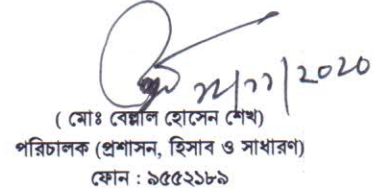 ২২/১১/2020
( মোঃ বেল্লাল হোসেন শেখ)
পরিচালক (প্রশাসন, হিসাব ও সাধারণ)
ফোন : ৯৫৫২১৮৯